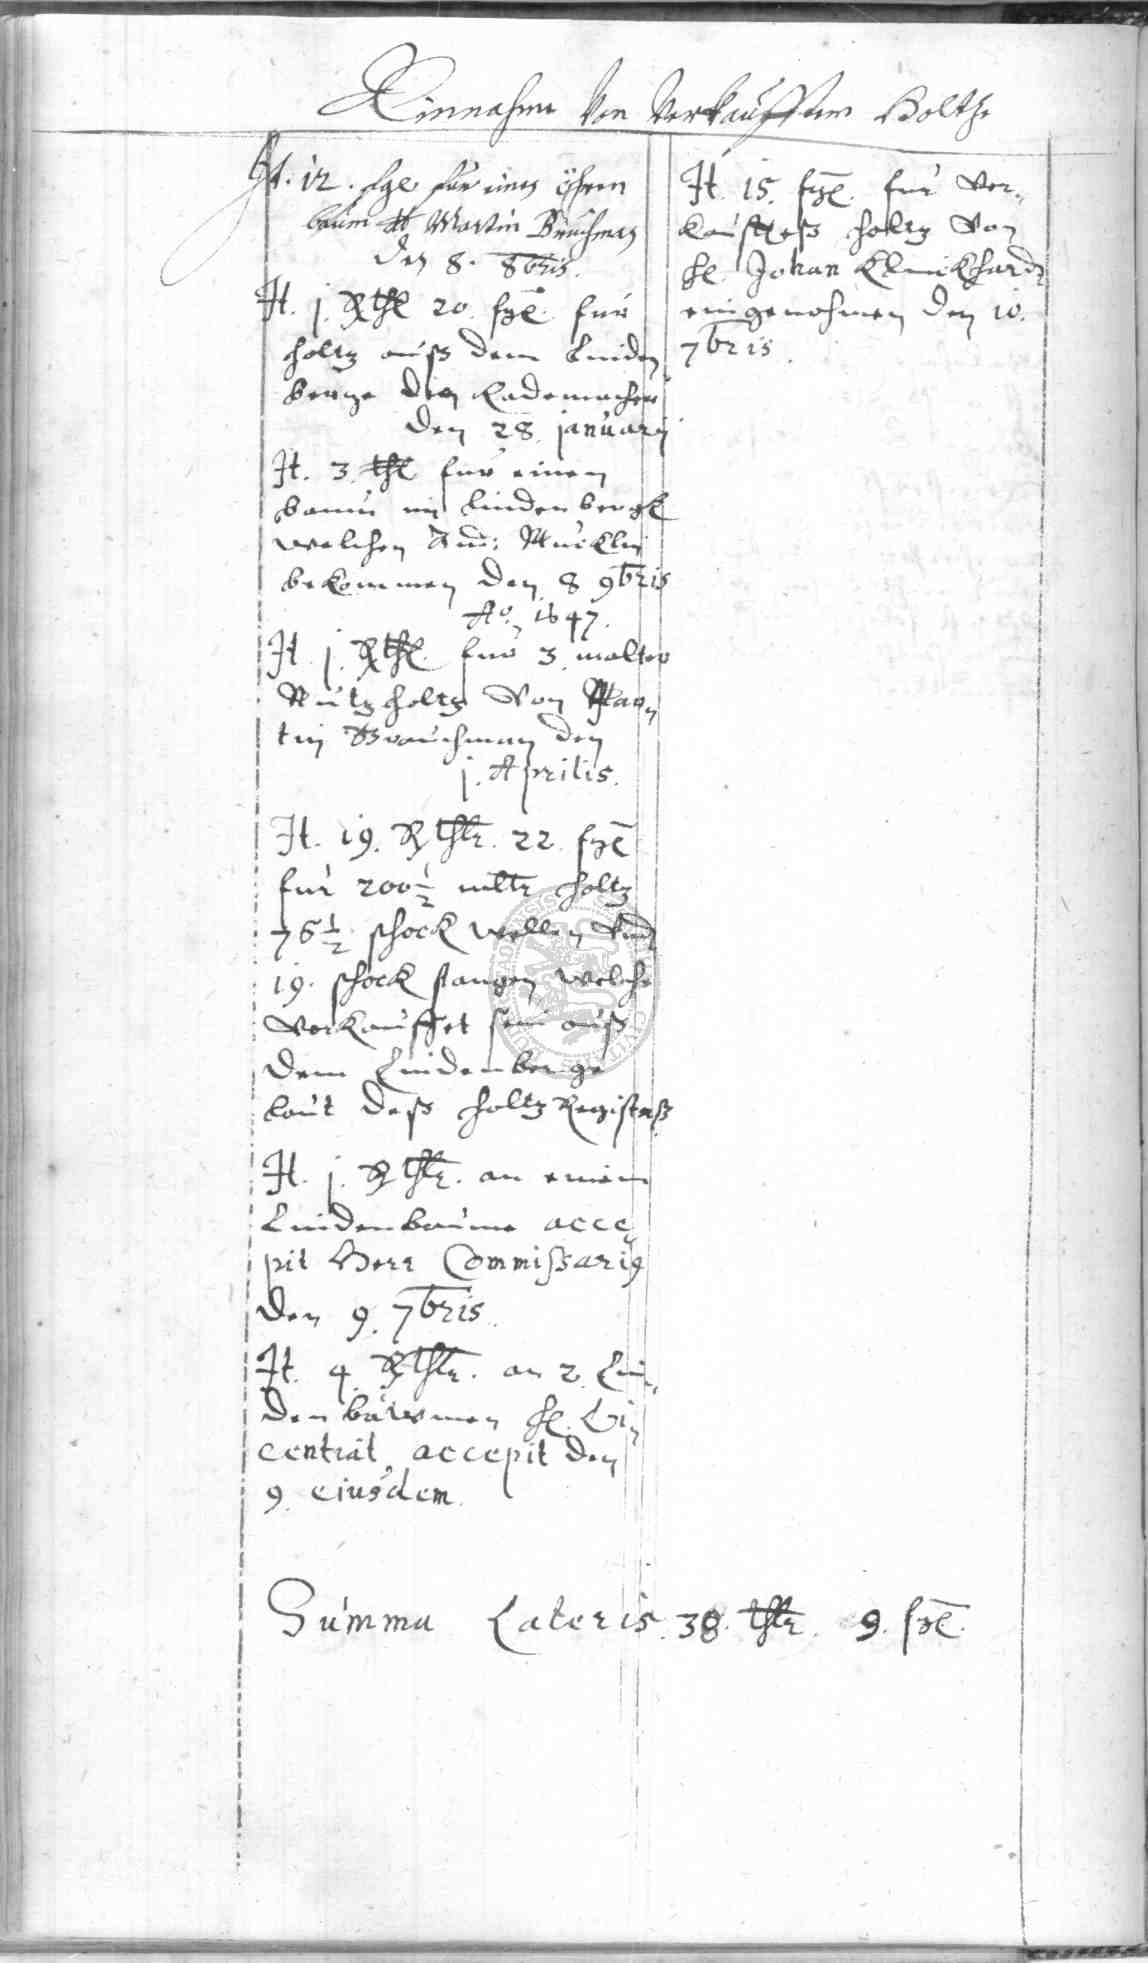 Einnahme Von Verkaufftem Holtze
It. 12. sgl für einen öhren
baum Martin Bruchman
den 8. 8bris.
It. j. Rthl 20. sgl. für
holtz auß dem Linden
berge den Rademacher
den 28. januarij
It. 3. thl für einen
baum im Lindenbergk
welchen And: Mücklin
bekommen den 8 9bris
Ao. 1647.
It. j. Rthl. für 3. malter
Nutzholtz Von Mar=
tin Brauchman den
j. Aprilis.
It. 19. Rthlr. 22. sgl
für 200 1/2 mltr holtz
76 1/2 schock wellen und
19. schock stangen welche
Verkauffet sein auß
dem Lindenberge
laut deß holtz Registerß
It. j. Rthlr. an einem
Lindenbaume acce
pit Herr Commißari9
den 9. 7bris.
It. 4 Rthlr. an 2. Lin=
denbäwmen H. Vi
centiat accepit den
9. eiusdem.
It. 15. sgl. für Ver=
kaufteß holtz Von
H. Johan Klinckhardt
eingenohmen den 10.
7bris.
Summa Lateris. 38. thlr. 9. sgl.